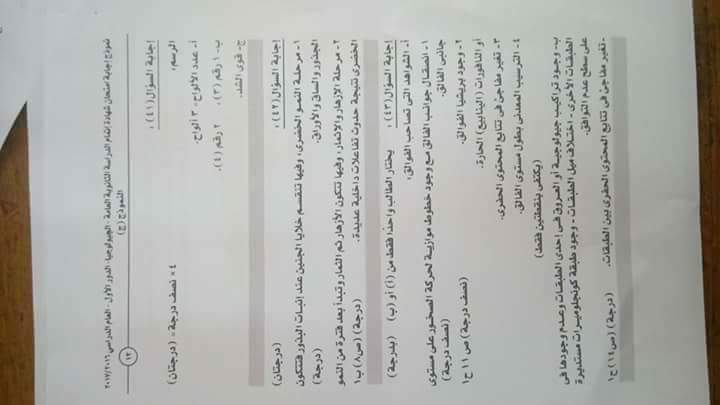 نموذج إجابة امتحان شهادة إتمام الدراسة الثانوية العامة - الجيولوجيا - الدور الأول - العام الدراسى ٢٠١٧/٢٠١٦
النموذج (ج)
١٢
إجابة السؤال (٤١) :
الرسم: ٤ × نصف درجة = (درجتان)
أ- عدد الألواح = ٣ ألواح.
ب- ١ رقم (٣). ٢ رقم (٤).
ج- قوى الشد.
إجابة السؤال (٤٢) : (درجتان)
١- مرحلة النمو الخضرى، وفيها تنقسم خلايا الجنين عند إنبات البذور فتتكون
الجذور والساق والأوراق. (درجة)
٢- مرحلة الإزهار والإثمار، وفيها تتكون الأزهار ثم الثمار وتبدأ بعد فترة من النمو
الخضرى نتيجة حدوث تفاعلات داخلية عديدة. (درجة) (ص٨) ب١
إجابة السؤال (٤٣) : يختار الطالب واحدًا فقط من (أ) أو (ب) (بدرجة)
أ- الشواهد التى تصاحب الفوالق: (نصف درجة)
١- انصقال جوانب الفالق مع وجود خطوط موازية لحركة الصخور على مستوى
جانبى الفالق. (نصف درجة) ص ١١ ح١
٢- وجود بريشيا الفوالق.
أو النافورات (الينابيع) الحارة.
٣- تغير مفاجئ فى تتابع المحتوى الحفرى.
٤- الترسيب المعدنى بطول مستوى الفالق.
(يكتفى بنقطتين فقط)
ب- وجود تراكيب جيولوجية أو العروق فى إحدى الطبقات وعدم وجودها فى
الطبقات الأخرى - اختلاف ميل الطبقات - وجود طبقة كونجلوميرات مستديرة
على سطح عدم التوافق.
- تغير مفاجئ فى تتابع المحتوى الحفرى بين الطبقات. (درجة) (ص١٤) ح١